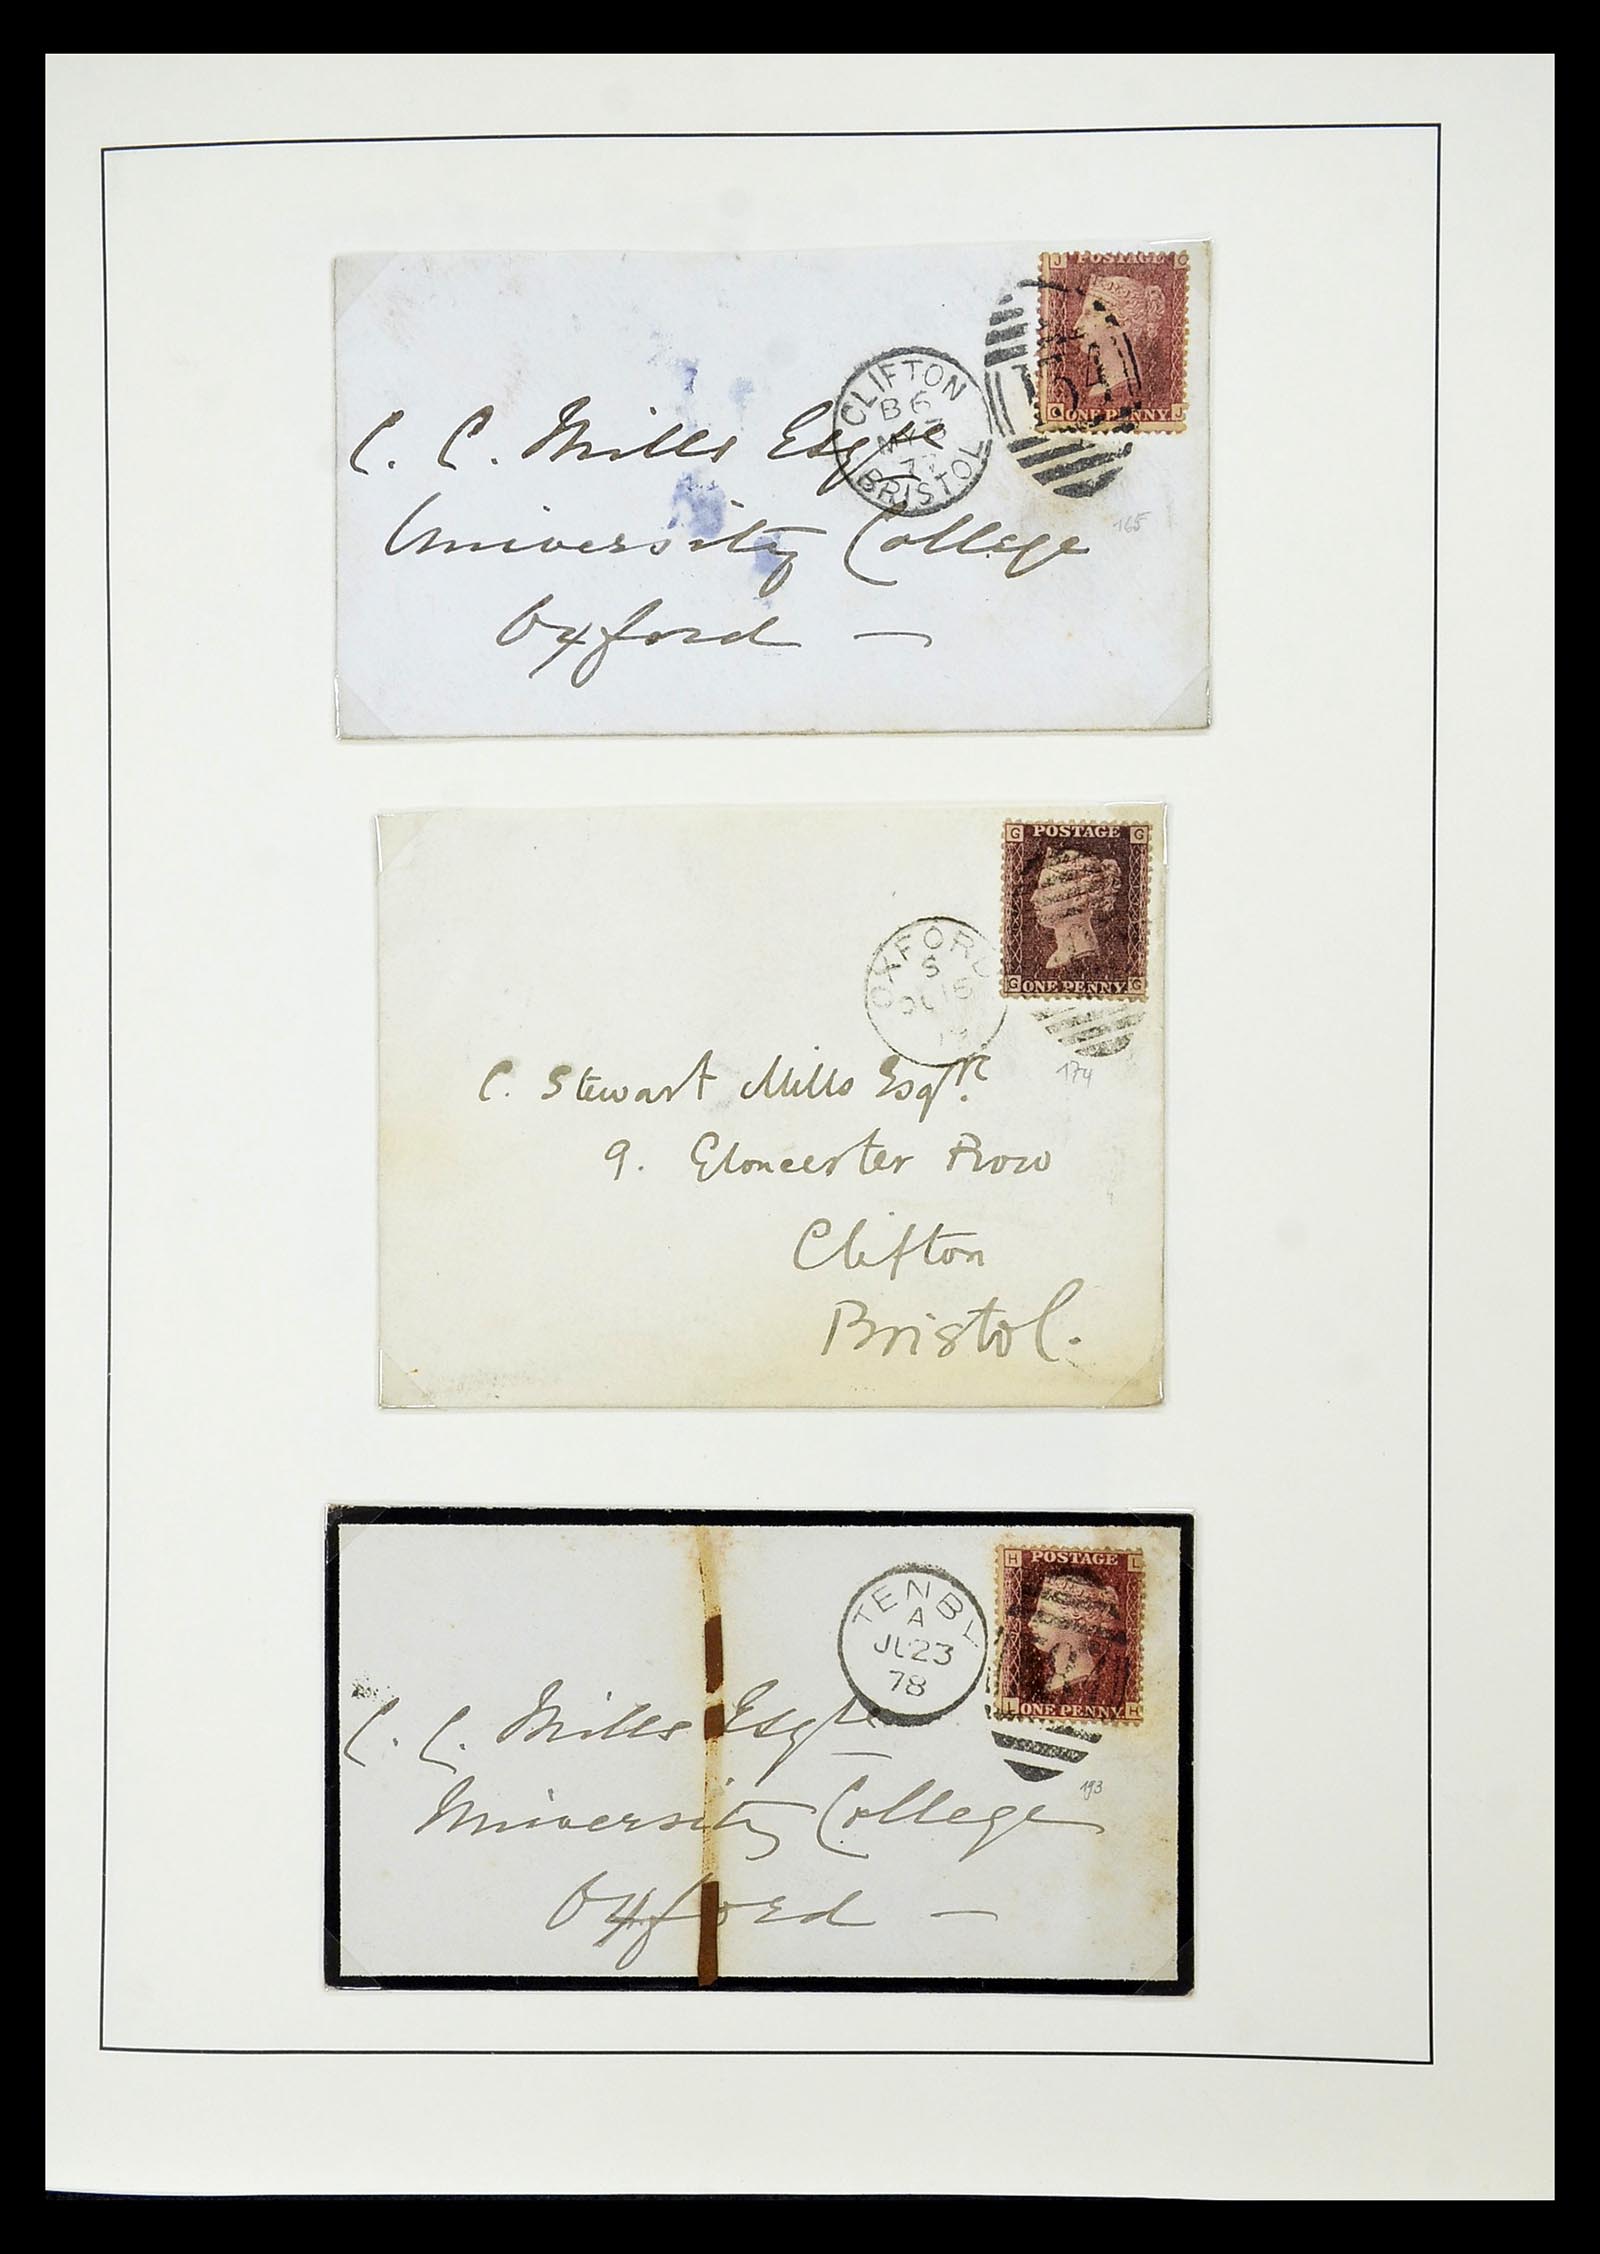 J POSTAGE C
134
C ONE PENNY J
CLIFTON
B 6
BRISTOL
C. C. Mills Esqre
165
University College
Oxford —
G POSTAGE G
G ONE PENNY G
OXFORD
S
174
C. Stewart Mills Esqr.
9. Gloucester Row
Clifton
Bristol.
H POSTAGE L
L ONE PENNY H
TENBY
A
JU 23
78
C. C. Mills Esqre
193
University College
Oxford —